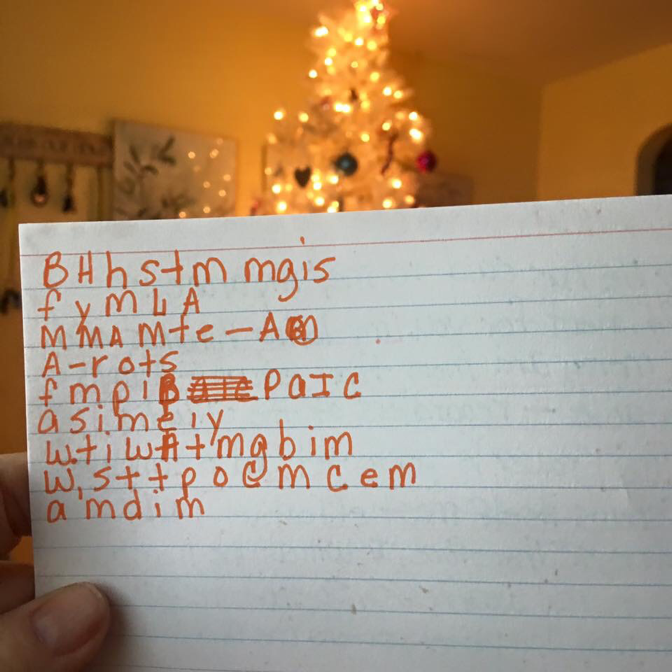 BHhstm mgis
fymLA
MMAMte-A
A-rots
fmpiB PaIC
asimeiy
wtiwAtmgbim
w,sttpo@mcem
amdim